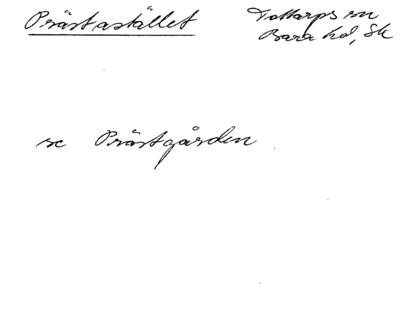 Prästastället
Tottarps sn
Bara hd, Sk
se Prästgården